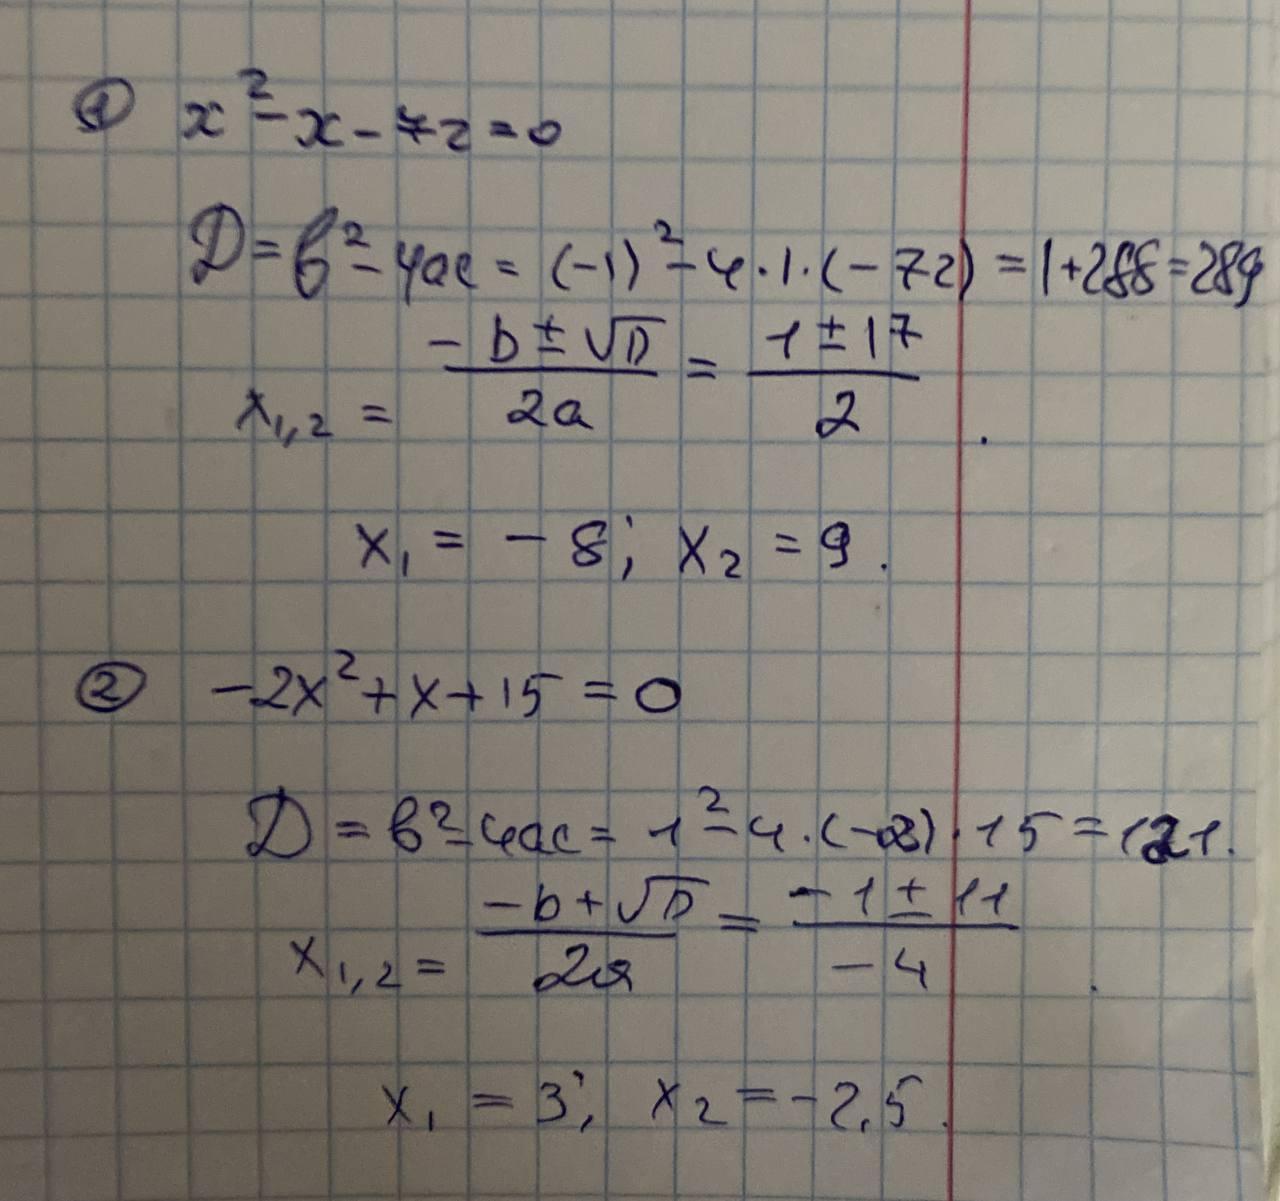 ① x² - x - 72 = 0
D = b² - 4ac = (-1)² - 4 · 1 · (-72) = 1 + 288 = 289
x₁,₂ = (-b ± √D) / 2a = (1 ± 17) / 2 .
x₁ = -8; x₂ = 9.
② -2x² + x + 15 = 0
D = b² - 4ac = 1² - 4 · (-2) · 15 = 121.
x₁,₂ = (-b + √D) / 2a = (-1 ± 11) / -4 .
x₁ = 3; x₂ = -2,5.